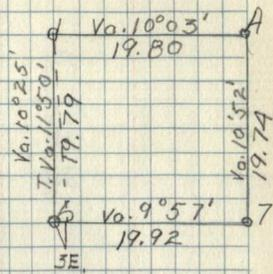 Va. 10°03' A
19.80
Va. 10°25'
T. Va. 11°50'
- 19.79
Va. 10°52'
19.74
Va. 9°57' 7
19.92
3E.